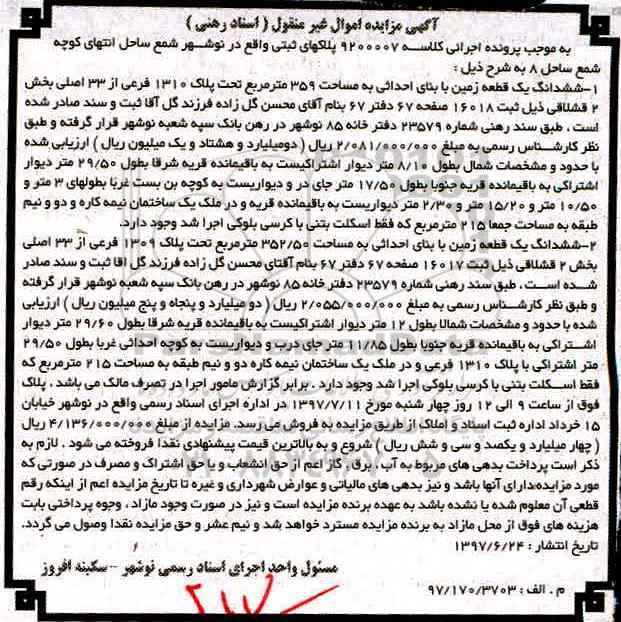 آگهی مزایده اموال غیر منقول ( اسناد رهنی )
به موجب پرونده اجرائی کلاسه ۹۲۰۰۰۰۷ پلاکهای ثبتی واقع در نوشهر شمع ساحل انتهای کوچه
شمع ساحل ۸ به شرح ذیل :
۱-ششدانگ یک قطعه زمین با بنای احداثی به مساحت ۳۵۹ مترمربع تحت پلاک ۱۳۱۰ فرعی از ۳۳ اصلی بخش
۲ قشلاقی ذیل ثبت ۱۶۰۱۸ صفحه ۶۷ دفتر ۶۷ بنام آقای محسن گل زاده فرزند گل آقا ثبت و سند صادر شده
است ، طبق سند رهنی شماره ۲۳۵۷۹ دفتر خانه ۸۵ نوشهر در رهن بانک سپه شعبه نوشهر قرار گرفته و طبق
نظر کارشناس رسمی به مبلغ ۲/۰۸۱/۰۰۰/۰۰۰ ریال ( دومیلیارد و هشتاد و یک میلیون ریال ) ارزیابی شده
با حدود و مشخصات شمال بطول ۸/۱۰ متر دیوار اشتراکیست به باقیمانده قریه شرقا بطول ۲۹/۵۰ متر دیوار
اشتراکی به باقیمانده قریه جنوبا بطول ۱۷/۵۰ متر جای در و دیواریست به کوچه بن بست غربا بطولهای ۳ متر و
۱۰/۵۰ متر و ۱۵/۲۰ متر و ۲/۳۰ متر دیواریست به باقیمانده قریه و در ملک یک ساختمان نیمه کاره و دو و نیم
طبقه به مساحت جمعا ۲۱۵ مترمربع که فقط اسکلت بتنی با کرسی بلوکی اجرا شد وجود دارد.
۲-ششدانگ یک قطعه زمین با بنای احداثی به مساحت ۳۵۲/۵۰ مترمربع تحت پلاک ۱۳۰۹ فرعی از ۳۳ اصلی
بخش ۲ قشلاقی ذیل ثبت ۱۶۰۱۷ صفحه ۶۷ دفتر ۶۷ بنام آقای محسن گل زاده فرزند گل آقا ثبت و سند صادر
شده است ، طبق سند رهنی شماره ۲۳۵۷۹ دفتر خانه ۸۵ نوشهر در رهن بانک سپه شعبه نوشهر قرار گرفته
و طبق نظر کارشناس رسمی به مبلغ ۲/۰۵۵/۰۰۰/۰۰۰ ریال ( دو میلیارد و پنجاه و پنج میلیون ریال ) ارزیابی
شده با حدود و مشخصات شمالا بطول ۱۲ متر دیوار اشتراکیست به باقیمانده قریه شرقا بطول ۲۹/۶۰ متر دیوار
اشتراکی به باقیمانده قریه جنوبا بطول ۱۱/۸۵ متر جای درب و دیواریست به کوچه احداثی غربا بطول ۲۹/۵۰
متر اشتراکی با پلاک ۱۳۱۰ فرعی و در ملک یک ساختمان نیمه کاره دو و نیم طبقه به مساحت ۲۱۵ مترمربع که
فقط اسکلت بتنی با کرسی بلوکی اجرا شد وجود دارد . برابر گزارش مامور اجرا در تصرف مالک می باشد ، پلاک
فوق از ساعت ۹ الی ۱۲ روز چهار شنبه مورخ ۱۳۹۷/۷/۱۱ در اداره اجرای اسناد رسمی واقع در نوشهر خیابان
۱۵ خرداد اداره ثبت اسناد و املاک از طریق مزایده به فروش می رسد. مزایده از مبلغ ۴/۱۳۶/۰۰۰/۰۰۰ ریال
( چهار میلیارد و یکصد و سی و شش ریال ) شروع و به بالاترین قیمت پیشنهادی نقدا فروخته می شود . لازم به
ذکر است پرداخت بدهی های مربوط به آب ، برق ، گاز اعم از حق انشعاب و یا حق اشتراک و مصرف در صورتی که
مورد مزایده دارای آنها باشد و نیز بدهی های مالیاتی و عوارض شهرداری و غیره تا تاریخ مزایده اعم از اینکه رقم
قطعی آن معلوم شده یا نشده باشد به عهده برنده مزایده است و نیز در صورت وجود مازاد ، وجوه پرداختی بابت
هزینه های فوق از محل مازاد به برنده مزایده مسترد خواهد شد و نیم عشر و حق مزایده نقدا وصول می گردد.
تاریخ انتشار : ۱۳۹۷/۶/۲۴
مسئول واحد اجرای اسناد رسمی نوشهر - سکینه افروز
م . الف : ۹۷/۱۷۰/۳۷۰۳